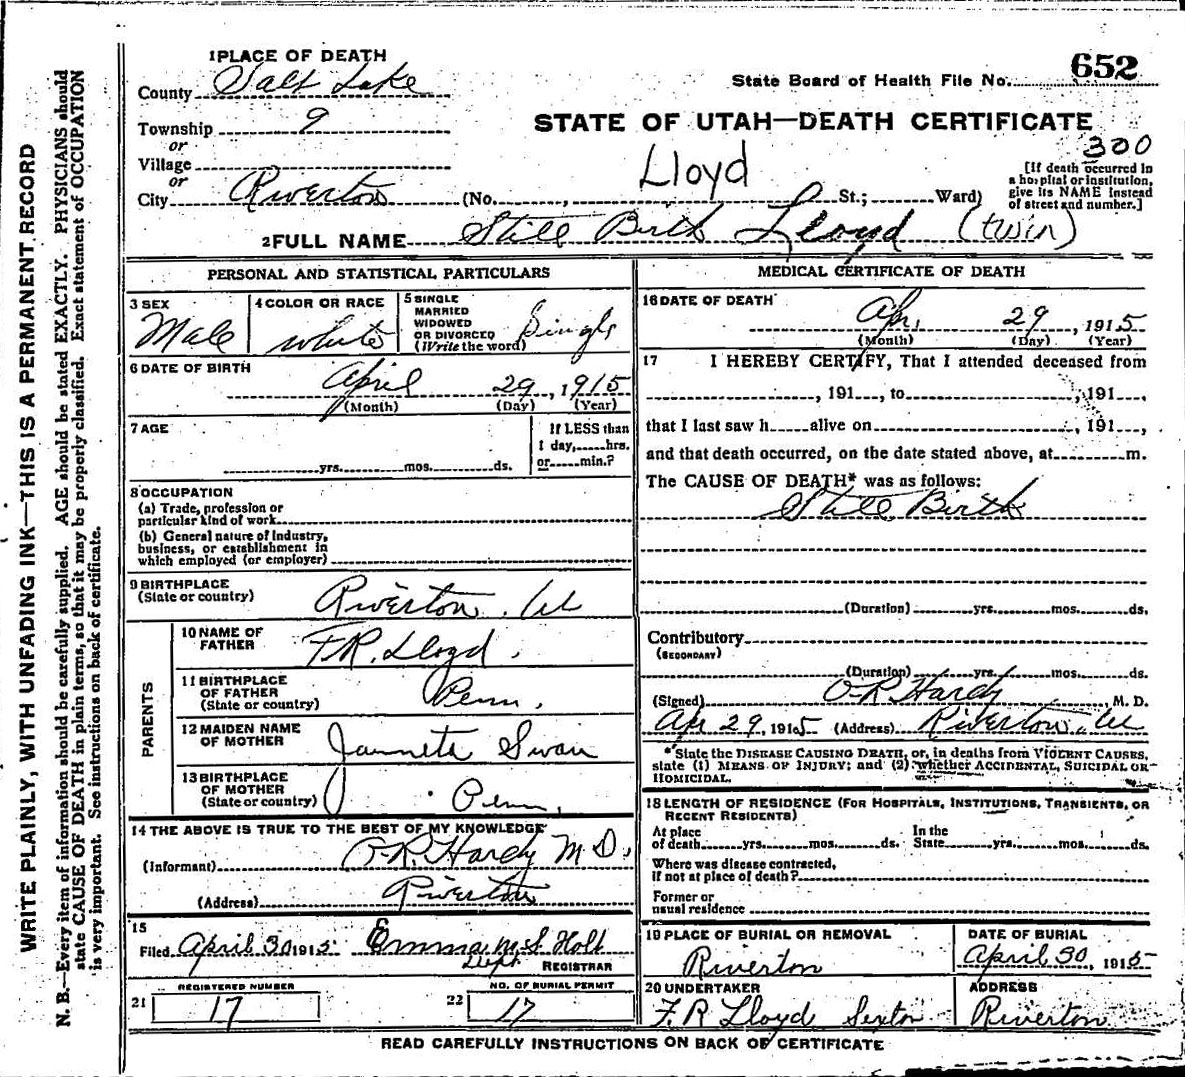 WRITE PLAINLY, WITH UNFADING INK—THIS IS A PERMANENT RECORD
N. B.—Every item of information should be carefully supplied. AGE should be stated EXACTLY. PHYSICIANS should
state CAUSE OF DEATH in plain terms, so that it may be properly classified. Exact statement of OCCUPATION
is very important. See instructions on back of certificate.
1 PLACE OF DEATH
County Salt Lake
Township 9
or
Village
or
City Riverton (No. , St.; Ward)
State Board of Health File No. 652
STATE OF UTAH—DEATH CERTIFICATE
300
Lloyd
[If death occurred in
a hospital or institution,
give its NAME instead
of street and number.]
2 FULL NAME Still Birth Lloyd (twin)
PERSONAL AND STATISTICAL PARTICULARS
3 SEX
Male
4 COLOR OR RACE
white
5 SINGLE
MARRIED
WIDOWED
OR DIVORCED
(Write the word)
Single
6 DATE OF BIRTH
April 29, 1915
(Month) (Day) (Year)
7 AGE
yrs. mos. ds.
If LESS than
1 day, hrs.
or min.?
8 OCCUPATION
(a) Trade, profession or
particular kind of work
(b) General nature of Industry,
business, or establishment in
which employed (or employer)
9 BIRTHPLACE
(State or country)
Riverton. Ut
PARENTS
10 NAME OF
FATHER
F.R. Lloyd.
11 BIRTHPLACE
OF FATHER
(State or country)
Penn.
12 MAIDEN NAME
OF MOTHER
Jannete Swan
13 BIRTHPLACE
OF MOTHER
(State or country)
Penn.
14 THE ABOVE IS TRUE TO THE BEST OF MY KNOWLEDGE
(Informant) O.R. Hardy M D.
(Address) Riverton
15
Filed April 30 1915 Emma M. S. Holt
Dept REGISTRAR
21 REGISTERED NUMBER
17
22 NO. OF BURIAL PERMIT
17
MEDICAL CERTIFICATE OF DEATH
16 DATE OF DEATH
Apr. 29, 1915
(Month) (Day) (Year)
17 I HEREBY CERTIFY, That I attended deceased from
, 191 , to , 191 ,
that I last saw h alive on , 191 ,
and that death occurred, on the date stated above, at m.
The CAUSE OF DEATH* was as follows:
Still Birth
(Duration) yrs. mos. ds.
Contributory
(SECONDARY)
(Duration) yrs. mos. ds.
(Signed) O R Hardy, M. D.
Apr 29, 1915 (Address) Riverton, Ut
*State the DISEASE CAUSING DEATH, or, in deaths from VIOLENT CAUSES,
state (1) MEANS OF INJURY; and (2) whether ACCIDENTAL, SUICIDAL OR
HOMICIDAL.
18 LENGTH OF RESIDENCE (FOR HOSPITALS, INSTITUTIONS, TRANSIENTS, OR
RECENT RESIDENTS)
At place
of death yrs. mos. ds.
In the
State yrs. mos. ds.
Where was disease contracted,
if not at place of death?
Former or
usual residence
19 PLACE OF BURIAL OR REMOVAL
Riverton
DATE OF BURIAL
April 30, 1915
20 UNDERTAKER
F. R Lloyd Sexton
ADDRESS
Riverton
READ CAREFULLY INSTRUCTIONS ON BACK OF CERTIFICATE